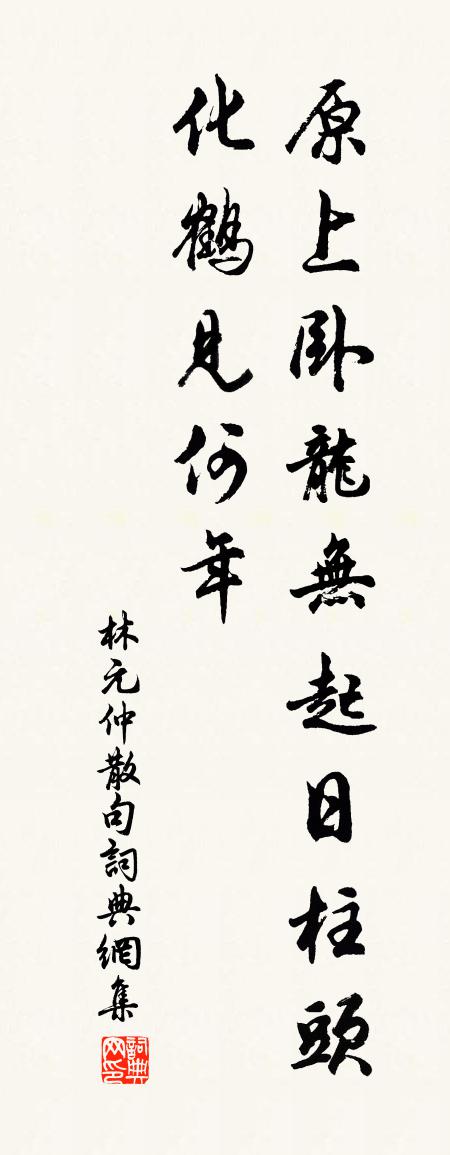 原上臥龍無起日柱頭
化鶴見何年
林元仲散句詞典網集
詞典网印